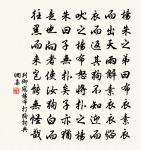 楊朱之弟曰布衣素衣
而出天雨解素衣衣緇
衣而返其狗不知迎而
吠之楊布怒將撲之楊
朱曰子無撲矣子亦猶
是也嚮者使汝狗白而
往黑而來豈能無怪哉
列御寇楊布打狗詞典
網集